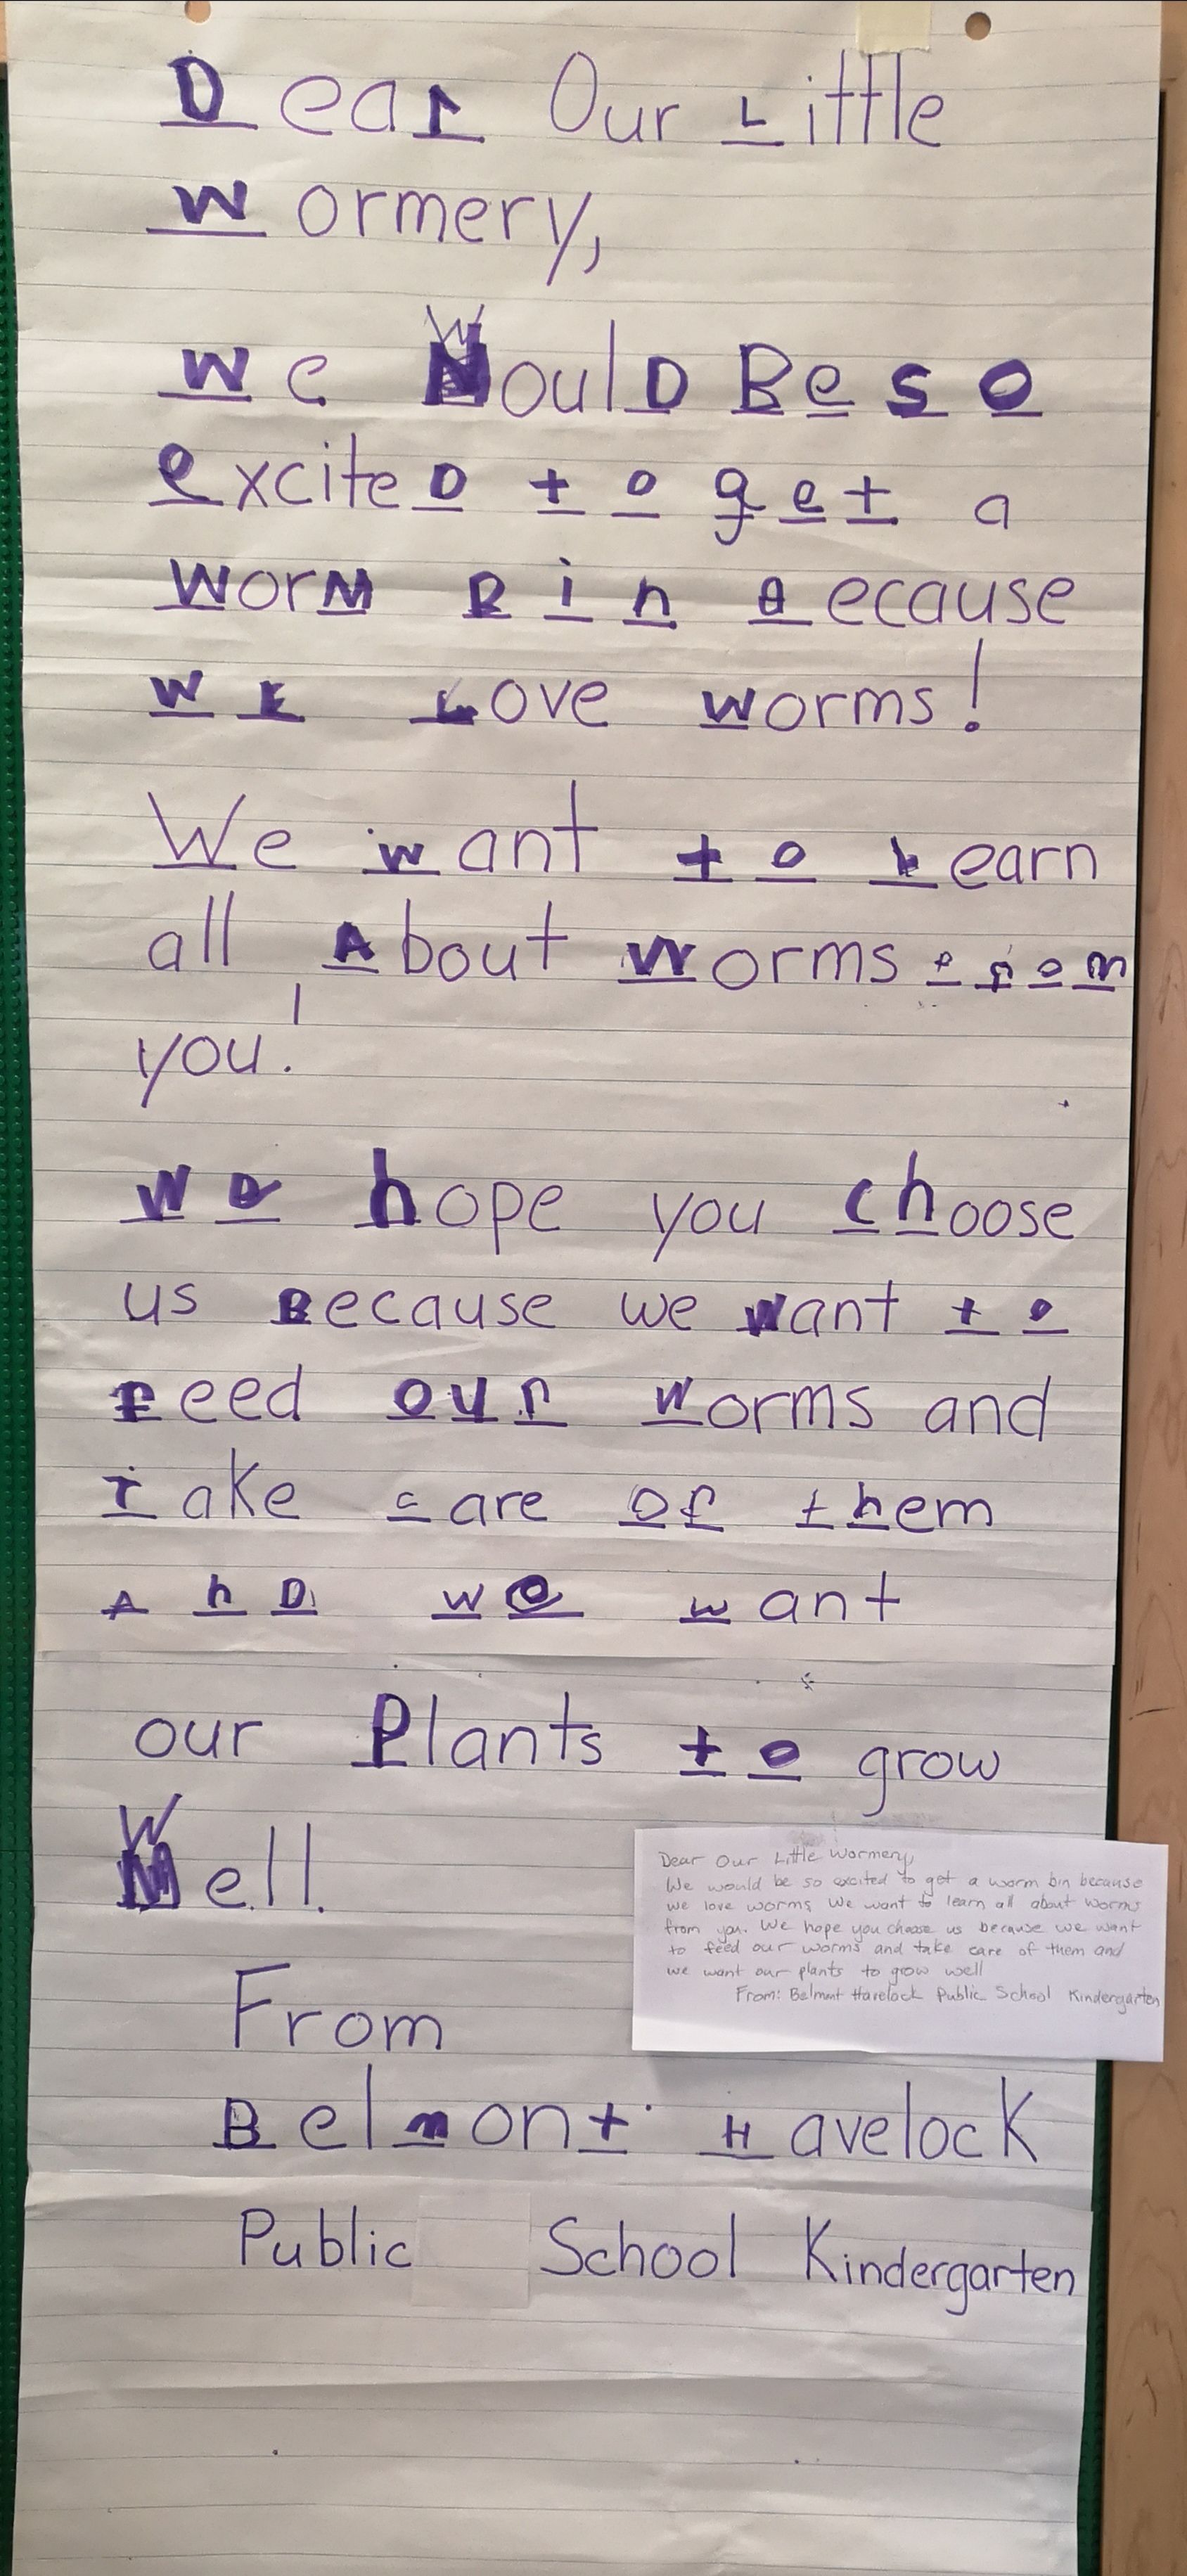 Dear Our Little
Wormery,
We WoulD Be so
exciteD to get a
WorM Bin Because
WE Love worms!
We want to Learn
all About Worms from
you!
We hope you choose
us Because we want to
Feed our Worms and
Take care of them
AnD we want
our Plants to grow
Well.
From
Belmont Havelock
Public School Kindergarten
Dear Our Little Wormery,
We would be so excited to get a worm bin because
we love worms. We want to learn all about worms
from you. We hope you choose us because we want
to feed our worms and take care of them and
we want our plants to grow well
From: Belmont Havelock Public School Kindergarten